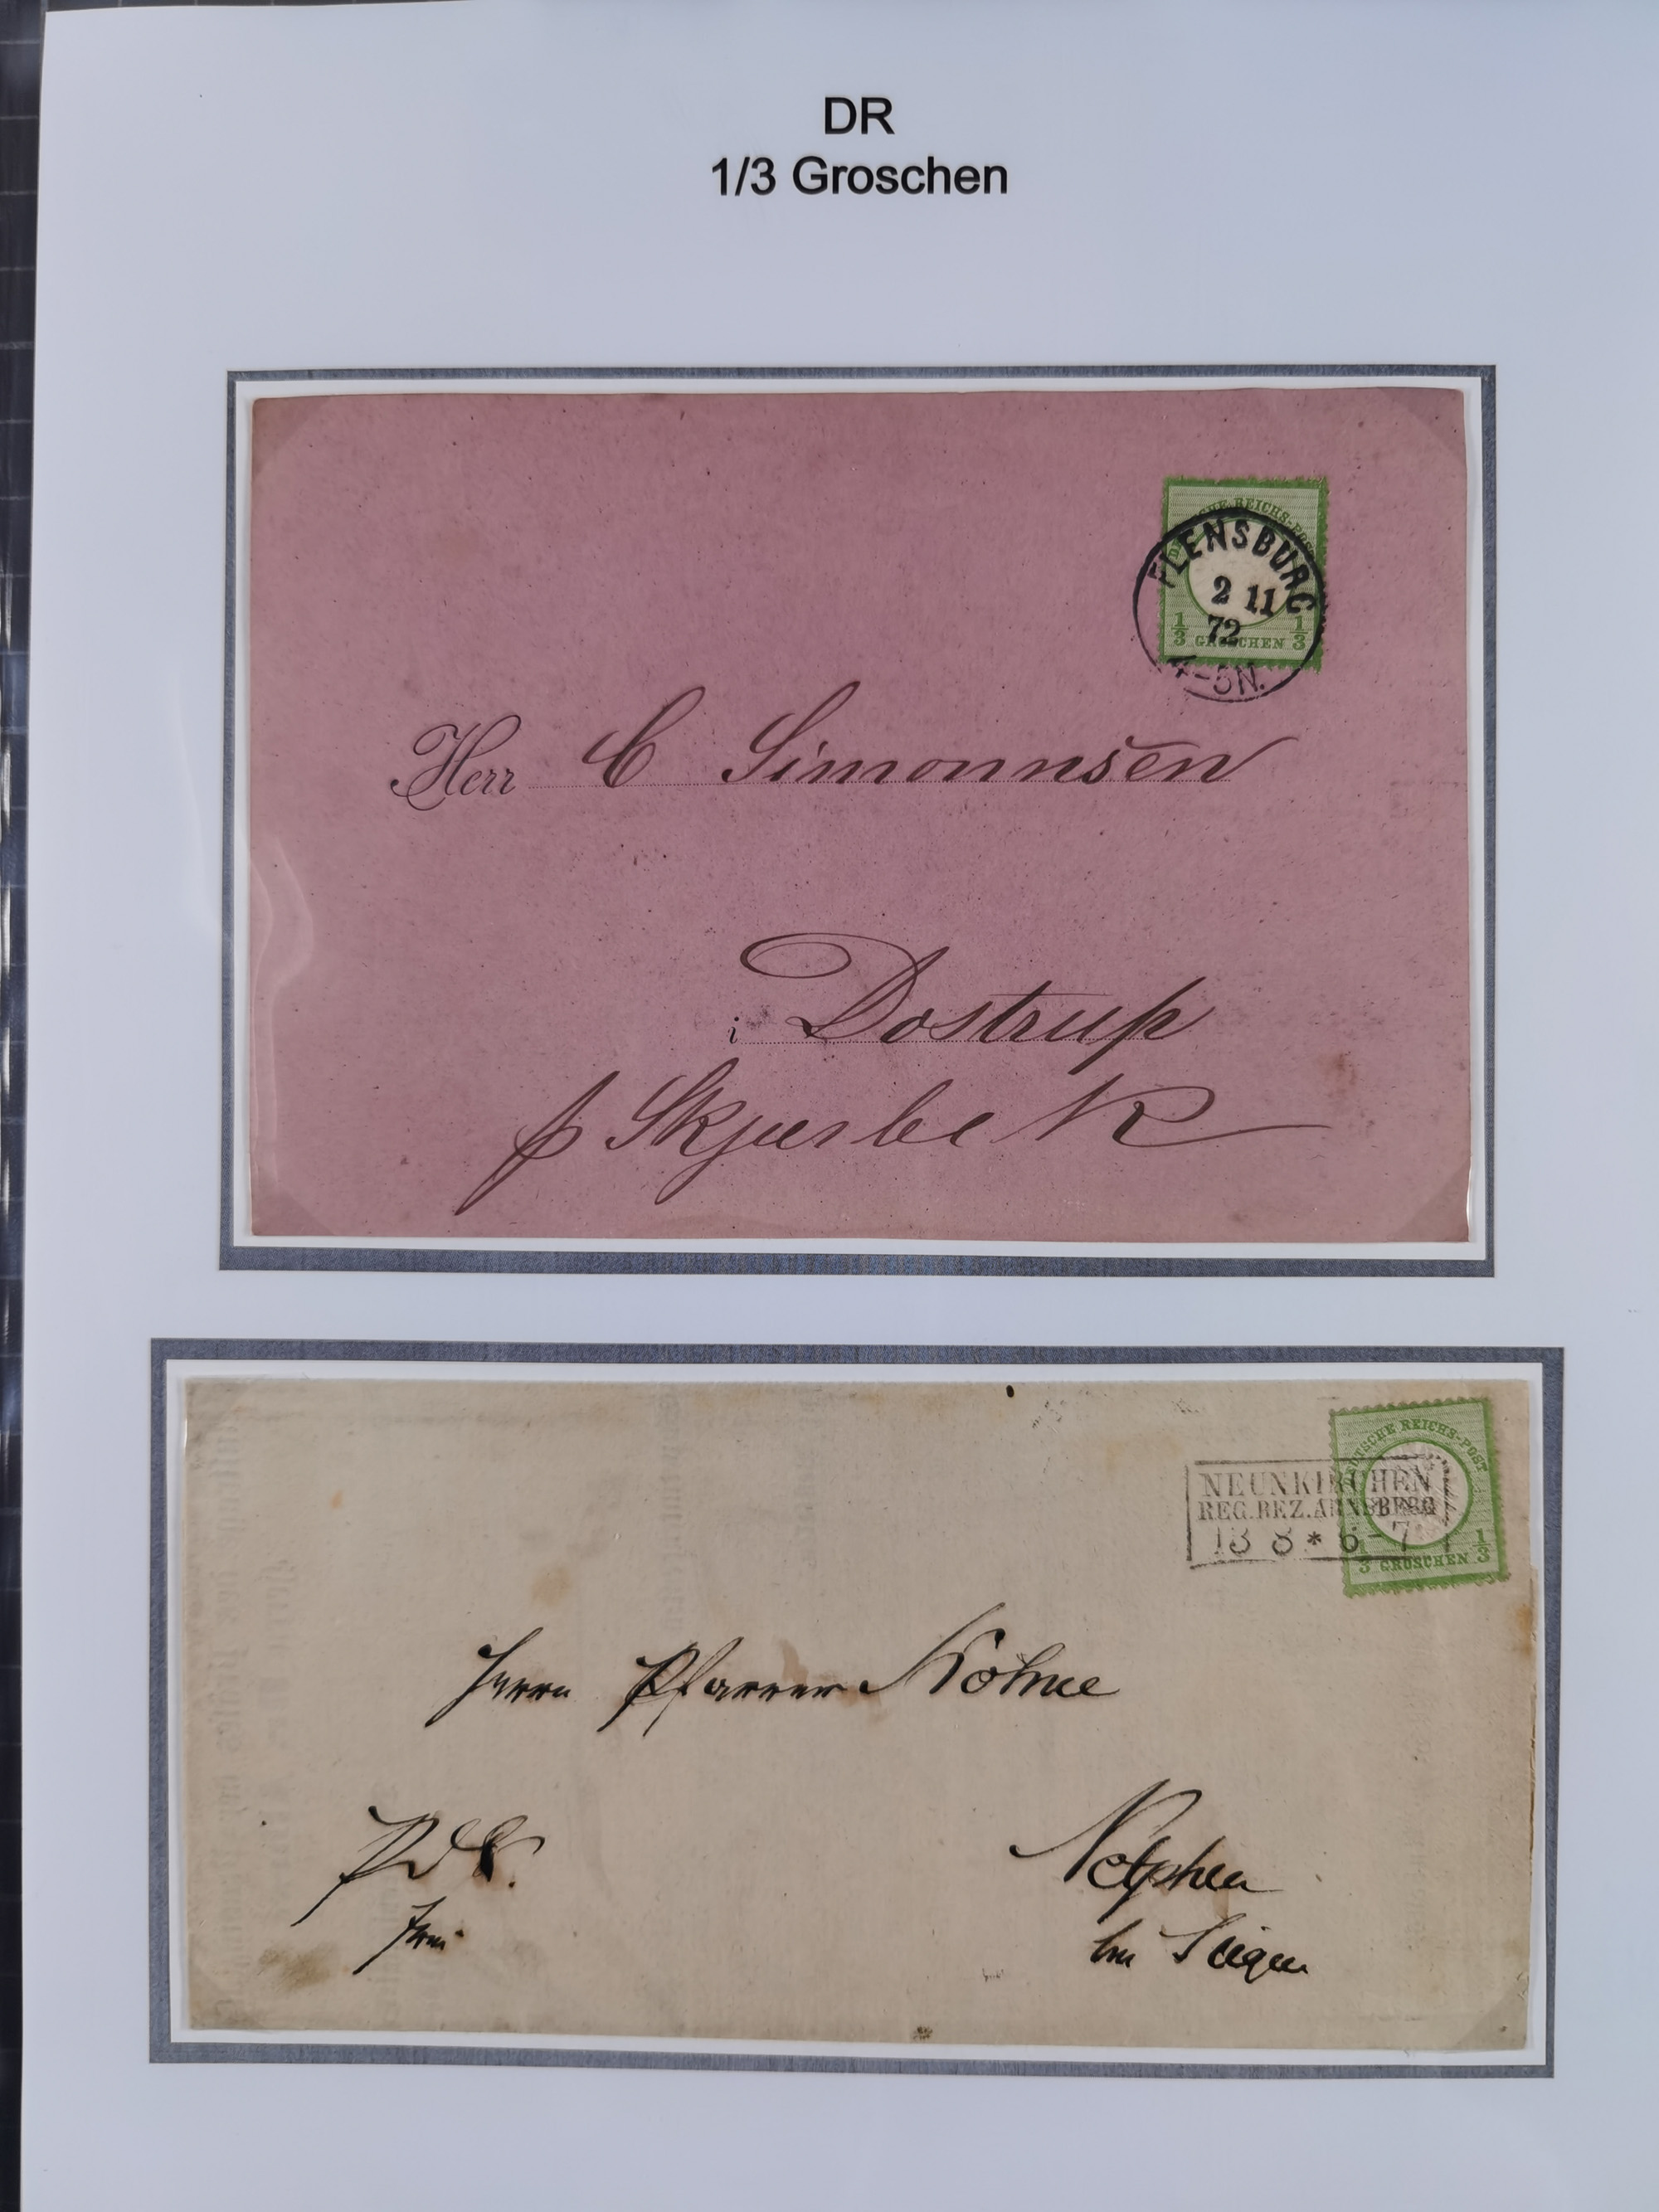 DR
1/3 Groschen
DEUTSCHE REICHS-POST
FLENSBURG
2 11
72
4-5N.
1/3 GROSCHEN 1/3
Herr C Simonnsen
i Dostrup
p Skjærbek
DEUTSCHE REICHS-POST
NEUNKIRCHEN
REG.BEZ.ARNSBERG
13 8 * 6-7
1/3 GROSCHEN 1/3
Herrn Pfarrer
Netphen
bei Siegen